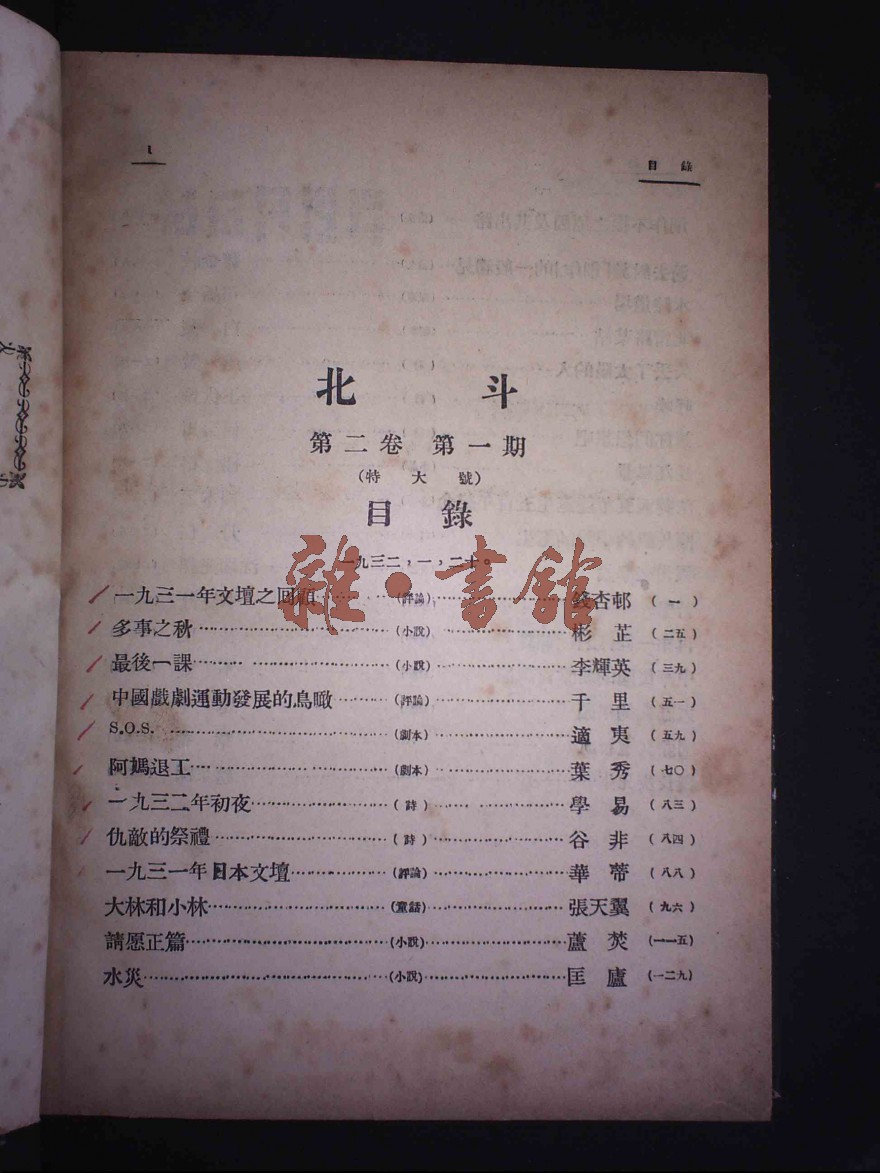 1
目錄
北斗
第二卷 第一期
(特大號)
目錄
一九三二，一，二十。
雜·書館
一九三一年文壇之回顧……(評論)……錢杏邨 (一)
多事之秋……(小說)……彬芷 (二五)
最後一課……(小說)……李輝英 (三九)
中國戲劇運動發展的鳥瞰……(評論)……千里 (五一)
S.O.S. ……(劇本)……適夷 (五九)
阿媽退工……(劇本)……葉秀 (七〇)
一九三二年初夜……(詩)……學易 (八三)
仇敵的祭禮……(詩)……谷非 (八四)
一九三一年日本文壇……(評論)……華蒂 (八八)
大林和小林……(童話)……張天翼 (九六)
請愿正篇……(小說)……蘆焚 (一一五)
水災……(小說)……匡廬 (一二九)